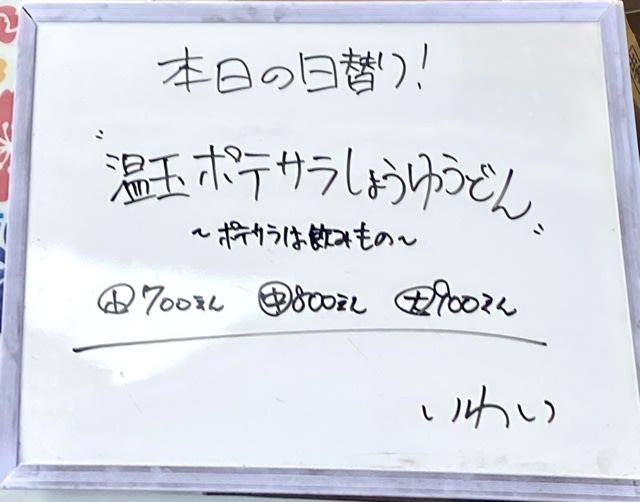 本日の日替り!
"温玉ポテサラしょうゆうどん"
~ポテサラは飲みもの~
㊥小700えん ㊥800えん 大900えん
いわい